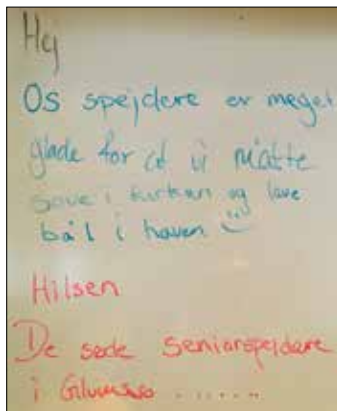 Hej
Os spejdere er meget
glade for at vi måtte
sove i kirken og lave
bål i haven
Hilsen
De søde seniorspejdere
i Glumsø .......